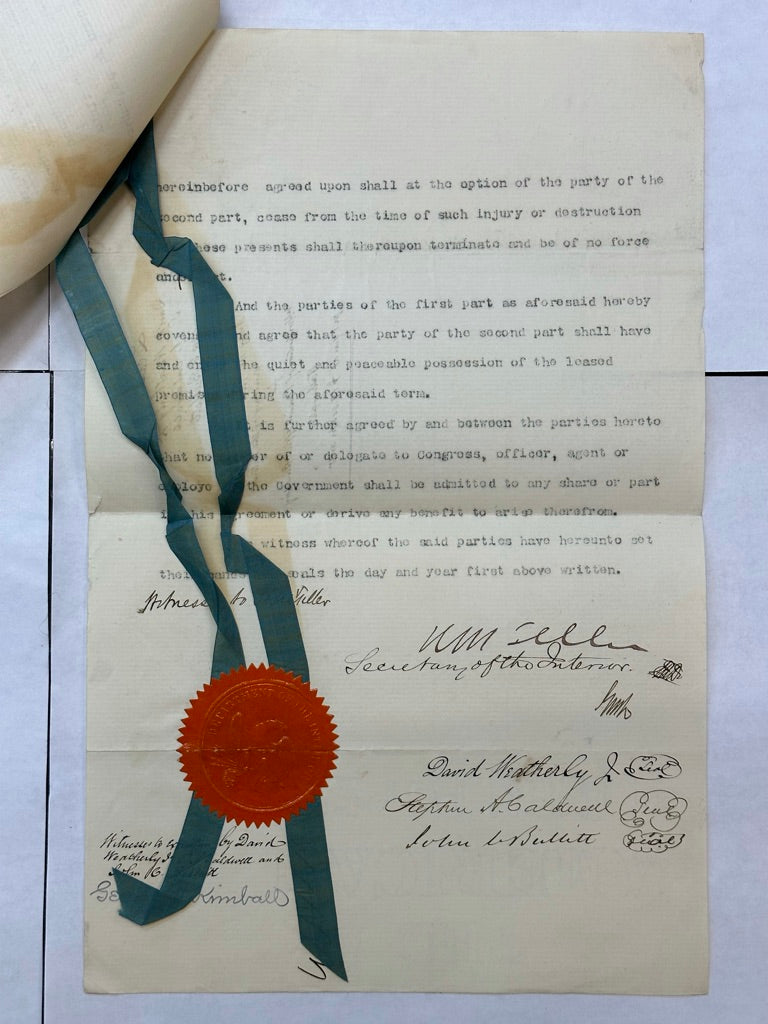 hereinbefore agreed upon shall at the option of the party of the
second part, cease from the time of such injury or destruction
these presents shall thereupon terminate and be of no force
and
And the parties of the first part as aforesaid hereby
and agree that the party of the second part shall have
and the quiet and peaceable possession of the leased
during the aforesaid term.
It is further agreed by and between the parties hereto
that no of or delegate to Congress, officer, agent or
the Government shall be admitted to any share or part
this or derive any benefit to arise therefrom.
witness whereof the said parties have hereunto set
seals the day and year first above written.
Witness to Teller
H M Teller
Secretary of the Interior.
David Weatherly Jr Seal
Stephen A. Caldwell Seal
John C Bullitt Seal
Witness to by David
Weatherly and
John C.
Kimball